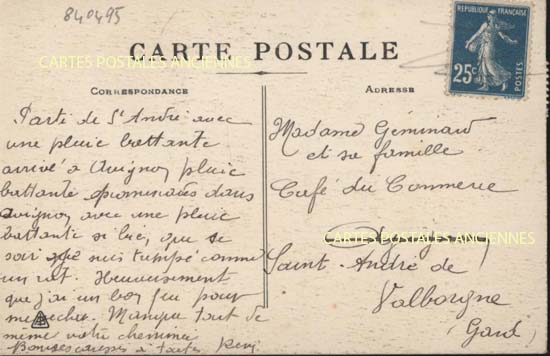 840495
RÉPUBLIQUE FRANÇAISE
25c
POSTES
CARTE POSTALE
CARTES POSTALES ANCIENNES
CORRESPONDANCE
Parti de St André avec
une pluie battante
arrivé à Avignon pluie
battante promenades dans
avignon avec une pluie
battante si bien que ce
soir je suis trempé comme
un rat. Heureusement
que j'ai un bon feu pour
me sécher. tout de
même votre
Bonnes caresses à toutes
ADRESSE
Madame Géminard
et sa famille
Café du Commerce
CARTES POSTALES ANCIENNES
Saint-André de
Valborgne
(Gard)